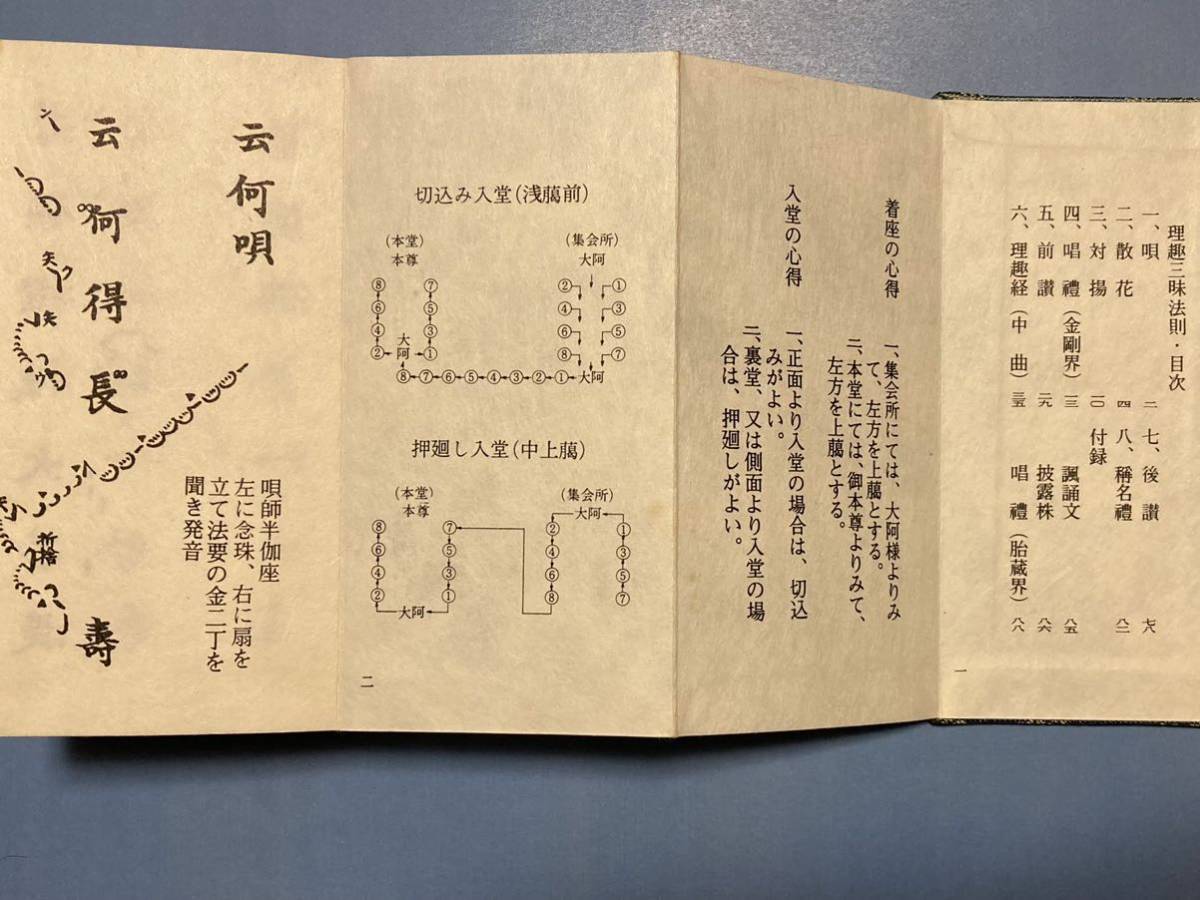 理趣三昧法則・目次
一、唄 二
二、散花 四
三、対揚 一〇
四、唱禮(金剛界) 一三
五、前讃 二九
六、理趣経(中曲) 三五
七、後讃 七六
八、稱名禮 八二
付録
諷誦文 八五
披露株 八六
唱禮(胎蔵界) 八八
一
着座の心得
一、集会所にては、大阿様よりみ
て、左方を上﨟とする。
二、本堂にては、御本尊よりみて、
左方を上﨟とする。
入堂の心得
一、正面より入堂の場合は、切込
みがよい。
二、裏堂、又は側面より入堂の場
合は、押廻しがよい。
切込み入堂(浅﨟前)
(集会所)
大阿
① ②
③ ④
⑤ ⑥
⑦ ⑧
大阿
(本堂)
本尊
⑧ ⑦
⑥ ⑤
④ ③
② 大阿 ①
⑧⑦⑥⑤④③②①大阿
押廻し入堂(中上﨟)
(集会所)
大阿
② ①
④ ③
⑥ ⑤
⑧ ⑦
(本堂)
本尊
⑧ ⑦
⑥ ⑤
④ ③
② ①
大阿
二
云何唄
唄師半伽座
左に念珠、右に扇を
立て法要の金二丁を
聞き発音
云何得長
壽
折捨